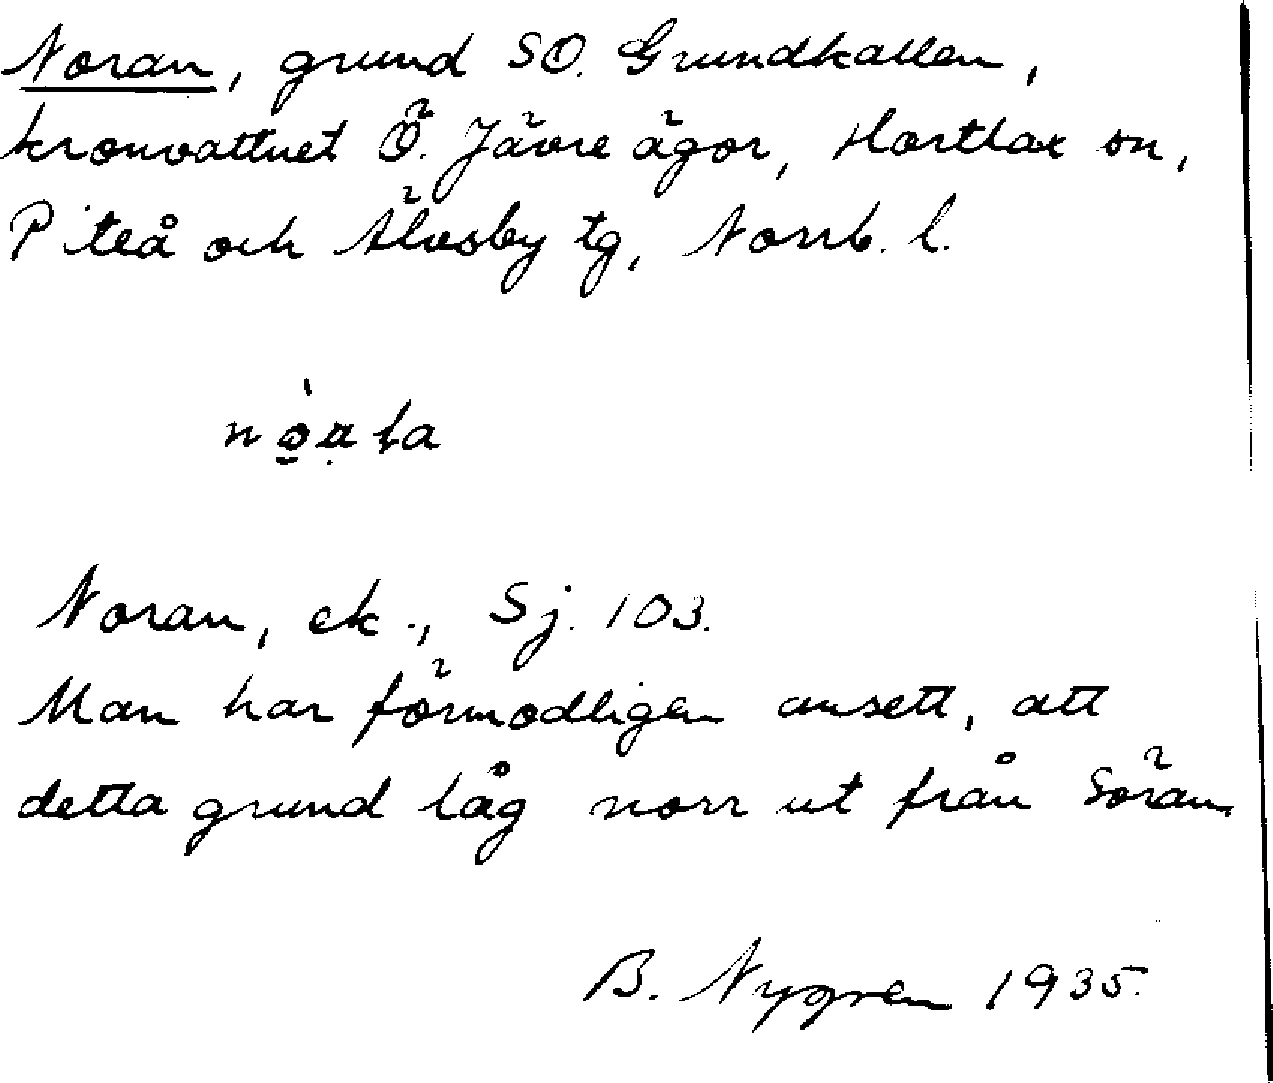 Noran, grund SO. Grundkallen,
kronvattnet Ö. Jävre ägor, Hortlax sn,
Piteå och Älvsby tg, Norrb. l.
Noran, ek., Sj. 103.
Man har förmodligen ansett, att
detta grund låg norr ut från Söran.
B. Nygren 1935.